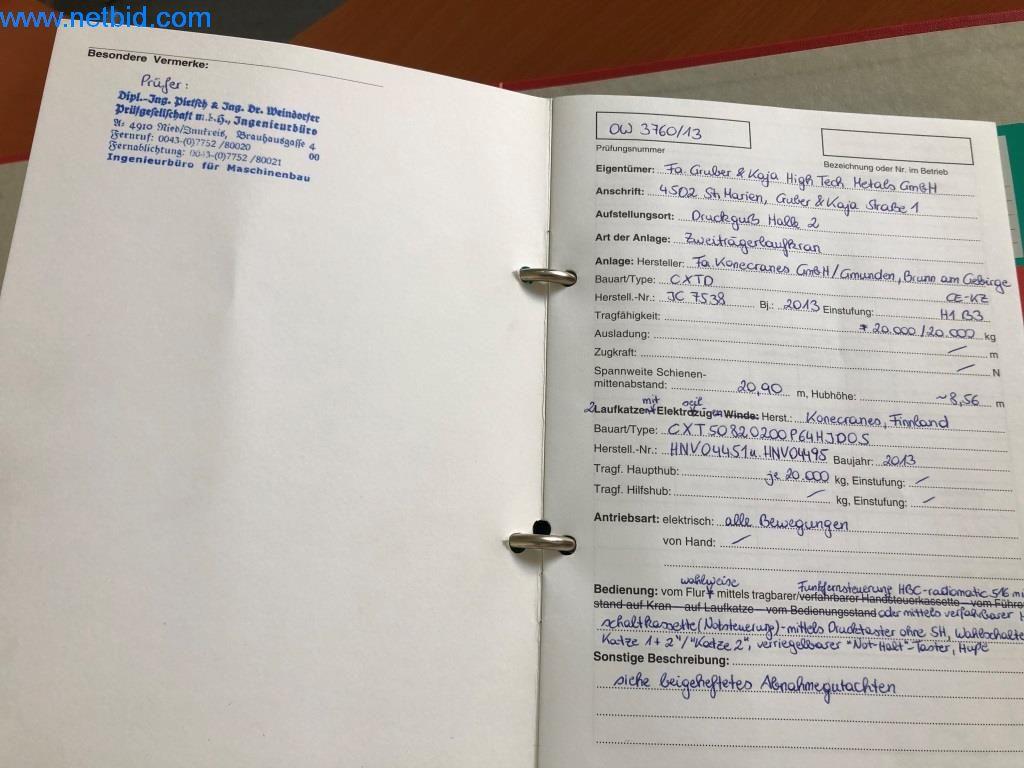 www.netbid.com
Besondere Vermerke:
Prüfer:
Dipl.-Ing. Pietsch & Ing. Dr. Weindorfer
Prüfgesellschaft m.b.H., Ingenieurbüro
A: 4910 Ried/Innkreis, Brauhausgasse 4
Fernruf: 0043-(0)7752 /80020
Fernablichtung: 0043-(0)7752 /80021 00
Ingenieurbüro für Maschinenbau
OW 3760/13
Prüfungsnummer
Bezeichnung oder Nr. im Betrieb
Eigentümer: Fa. Gruber & Kaja High Tech Metals GmbH
Anschrift: 4502 St. Marien, Gruber & Kaja Straße 1
Aufstellungsort: Druckguß Halle 2
Art der Anlage: Zweiträgerlaufkran
Anlage: Hersteller: Fa. Konecranes GmbH/Gmunden, Brunn am Gebirge
Bauart/Type: CXTD CE-KZ
Herstell.-Nr.: JC 7538 Bj.: 2013 Einstufung: H1 B3
Tragfähigkeit: * 20.000/20.000 kg
Ausladung: / m
Zugkraft: / N
Spannweite Schienen-
mittenabstand: 20,90 m, Hubhöhe: ~8,56 m
2 Laufkatzen mit Elektrozügen Winde: Herst.: Konecranes, Finnland
Bauart/Type: CXT50820200P64HJDOS
Herstell.-Nr.: HNV04451 u. HNV04495 Baujahr: 2013
Tragf. Haupthub: je 20.000 kg, Einstufung: /
Tragf. Hilfshub: / kg, Einstufung: /
Antriebsart: elektrisch: alle Bewegungen
von Hand: /
wahlweise Funkfernsteuerung HBC-radiomatic 516
Bedienung: vom Flur mittels tragbarer/verfahrbarer Handsteuerkassette – vom
stand auf Kran – auf Laufkatze – vom Bedienungsstand oder mittels verfahrbarer
schaltkassette (Notsteuerung)-mittels Drucktaster ohne SH,
Katze 1+2"/"Katze 2", verriegelbarer "Not-Halt"-Taster, Hupe
Sonstige Beschreibung:
siehe beigeheftetes Abnahmegutachten